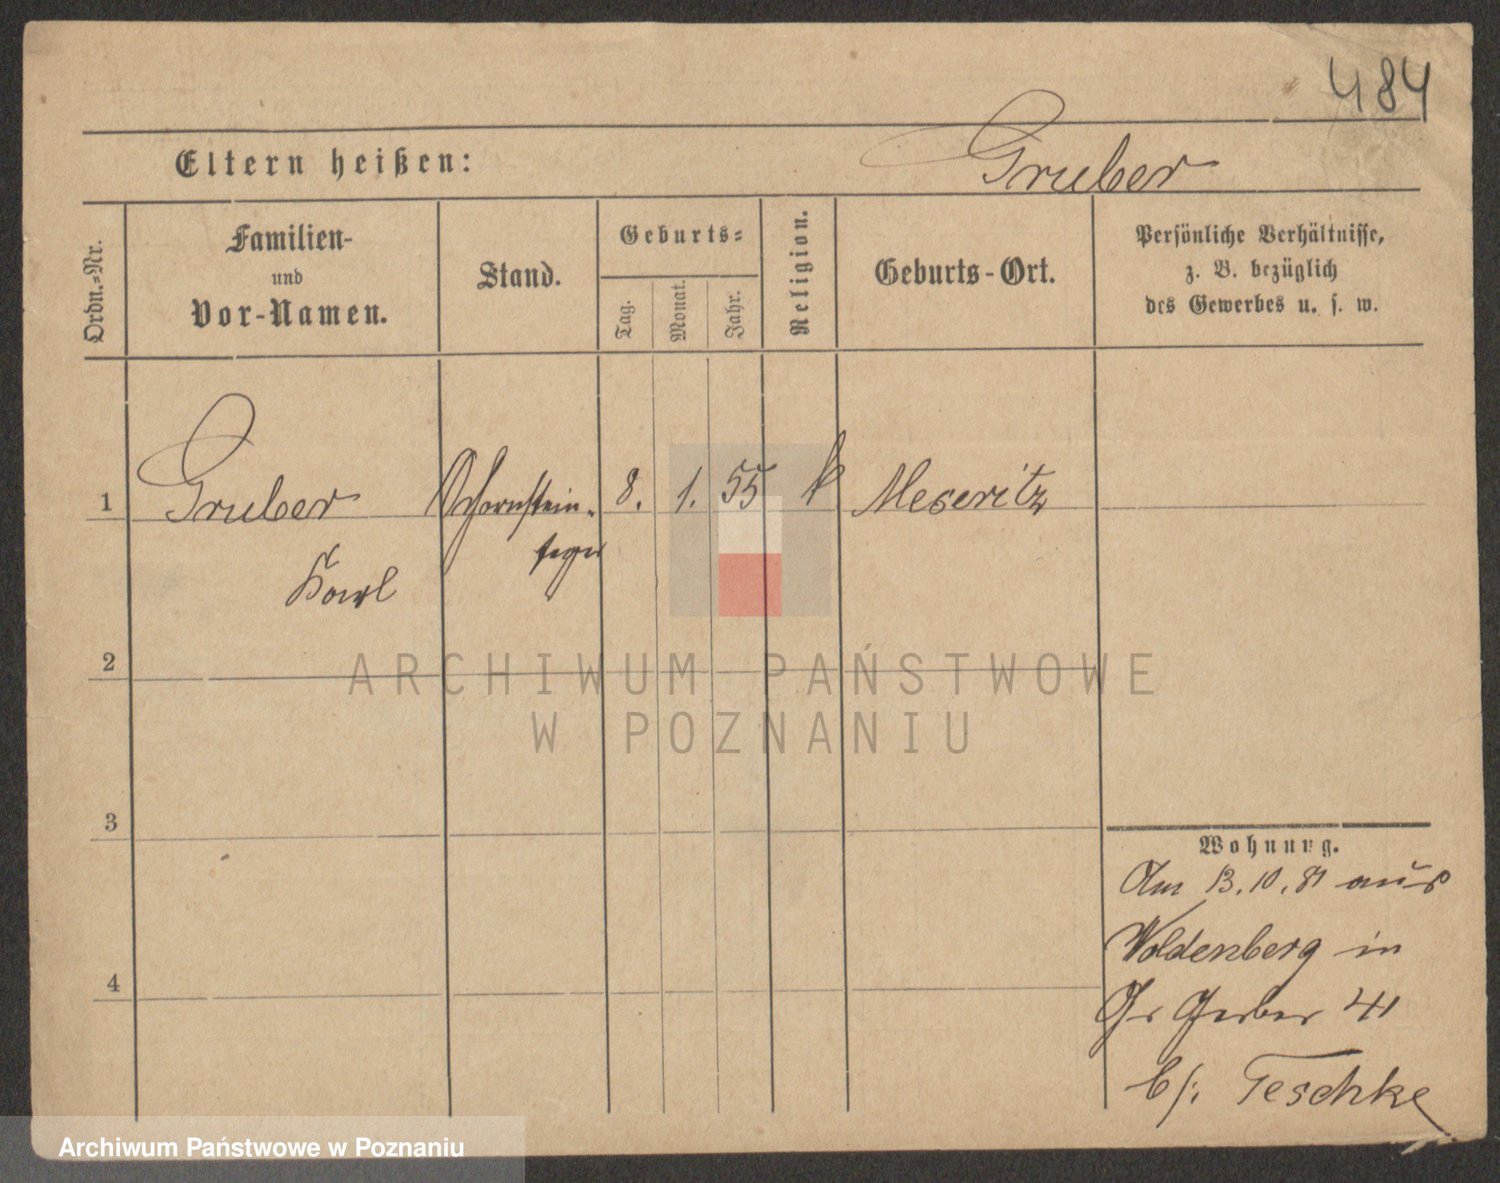 484
Eltern heißen: Gruber
Ordn.-Nr.
Familien-
und
Vor-Namen.
Stand.
Geburts-
Tag.
Monat.
Jahr.
Religion.
Geburts-Ort.
Persönliche Verhältnisse,
z. B. bezüglich
des Gewerbes u. s. w.
1 Gruber Schornstein- 8. 1. 55 k Meseritz
feger
Karl
2
3
4
Wohnung.
Am 13.10.81 aus
Woldenberg in
Gr Gerber 41
b/: Teschke
ARCHIWUM PAŃSTWOWE
W POZNANIU
Archiwum Państwowe w Poznaniu